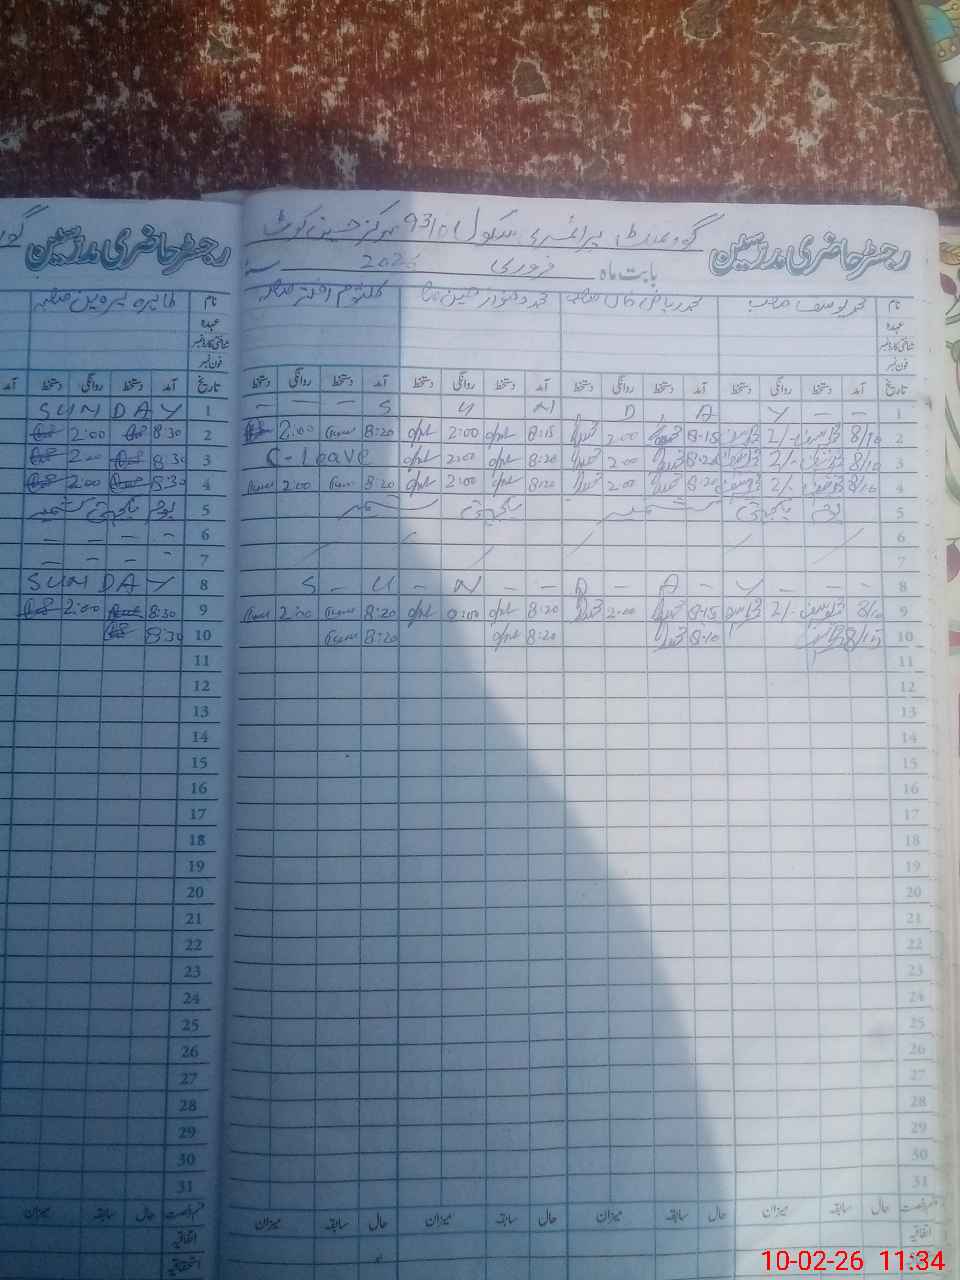 رجسٹر حاضری مدرسین
گورنمنٹ پرائمری سکول 93/01 مرکز حسین کوٹ
بابت ماہ فروری 2026
نام محمد یوسف صاحب محمد ریاض خان صاحب محمد دلنواز حسین کلثوم اختر صاحبہ
عہدہ
شناختی کارڈ نمبر
فون نمبر
تاریخ آمد دستخط روانگی دستخط آمد دستخط روانگی دستخط آمد دستخط روانگی دستخط آمد دستخط روانگی دستخط
1 - - - S U N D A Y - -
2 8/10 2/- 8-15 2:00 8:15 2:00 8:20 2:00
3 8/10 2/- 8:20 2:00 8:20 2:00 C-Leave
4 8/10 2/- 8:20 2:00 8:20 2:00 8:20 2:00
5 یوم یکجہتی کشمیر یکجہتی کشمیر
6
7
8 S - U - N - - D - A - Y - -
9 8/10 2/- 8-15 2:00 8:20 2:00 8:20 2:00
10 8/15 8-10 8:20 8:20
11
12
13
14
15
16
17
18
19
20
21
22
23
24
25
26
27
28
29
30
31
قسم رخصت حال سابقہ میزان حال سابقہ میزان حال سابقہ میزان
اتفاقیہ
استحقاقیہ
رجسٹر حاضری مدرسین
نام طاہرہ پروین صاحبہ
عہدہ
شناختی کارڈ نمبر
فون نمبر
تاریخ آمد دستخط روانگی دستخط آمد
1 SUNDAY
2 8:30 2:00
3 8:30 2:00
4 8:30 2:00
5 یوم یکجہتی کشمیر
6 - - - -
7 - - - -
8 SUNDAY
9 8:30 2:00
10 8:30
11
12
13
14
15
16
17
18
19
20
21
22
23
24
25
26
27
28
29
30
31
قسم رخصت حال سابقہ میزان
اتفاقیہ
استحقاقیہ
10-02-26 11:34